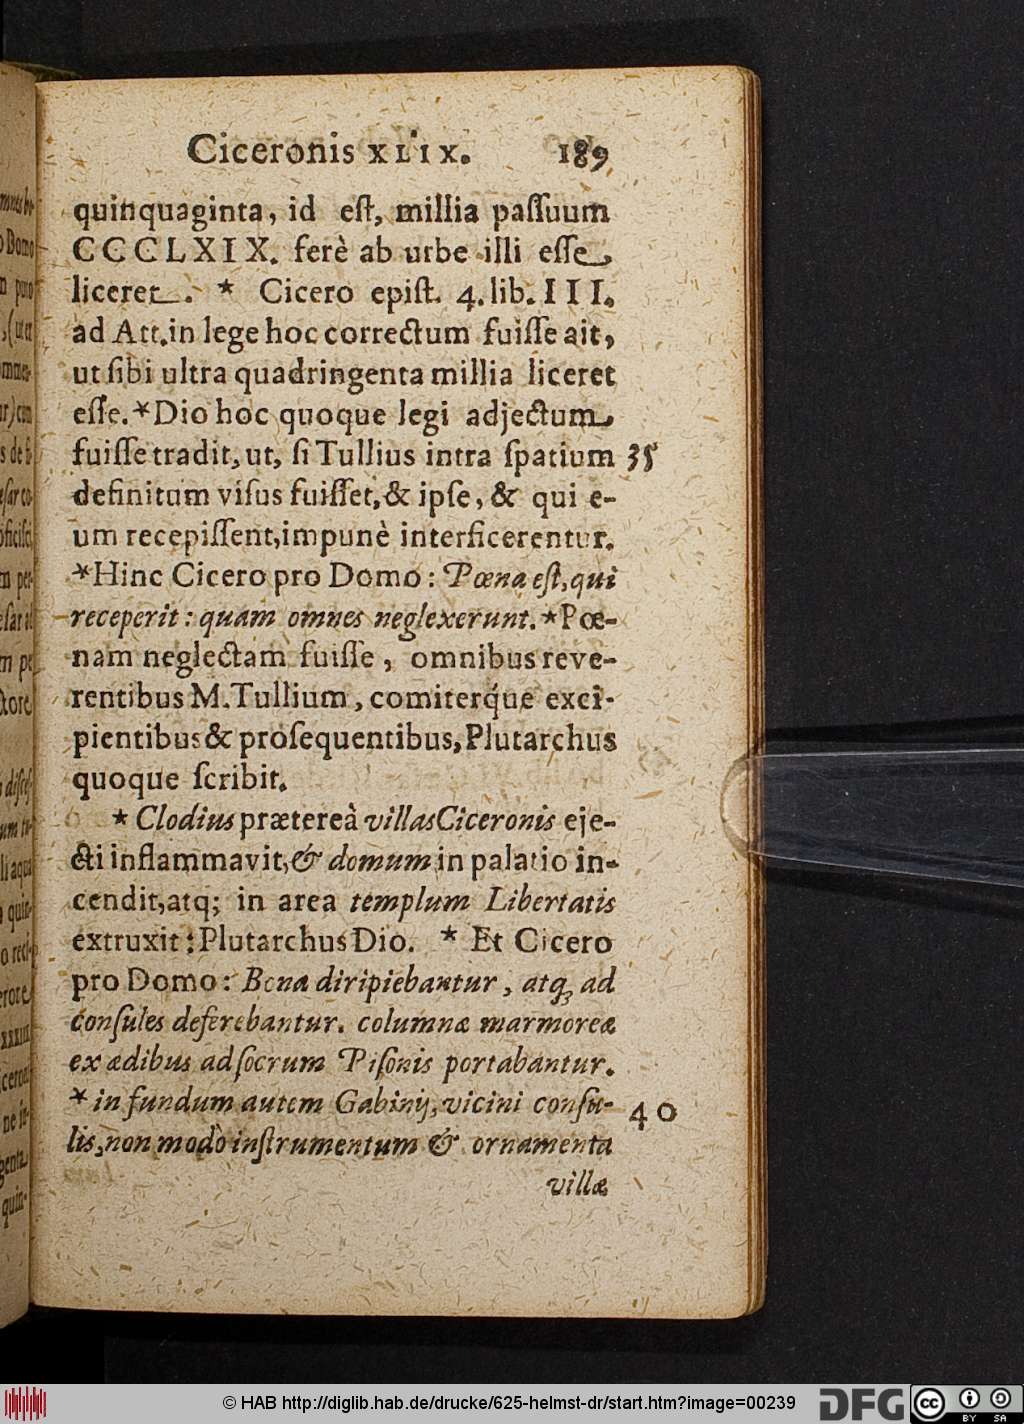 Ciceronis XLIX. 189
quinquaginta, id eſt, millia paſſuum
CCCCLXIX. ferè ab urbe illi eſſe,
liceret. * Cicero epiſt. 4. lib. III.
ad Att. in lege hoc correctum fuiſſe ait,
ut ſibi ultra quadringenta millia liceret
eſſe. * Dio hoc quoque legi adjectum
fuiſſe tradit, ut, ſi Tullius intra ſpatium 35
definitum viſus fuiſſet, & ipſe, & qui e-
um recepiſſent, impunè interficerentur.
* Hinc Cicero pro Domo: Pœna eſt, qui
receperit: quam omnes neglexerunt. * Pœ-
nam neglectam fuiſſe, omnibus reve-
rentibus M. Tullium, comiterq́ue exci-
pientibus & proſequentibus, Plutarchus
quoque ſcribit.
* Clodius prætereà villas Ciceronis eje-
cti inflammavit, & domum in palatio in-
cendit, atq; in area templum Libertatis
extruxit: Plutarchus Dio. * Et Cicero
pro Domo: Bona diripiebantur, atq; ad
conſules deferebantur. columnæ marmoreæ
ex ædibus ad ſocrum Piſonis portabantur.
* in fundum autem Gabinij, vicini conſu- 40
lis, non modò inſtrumentum & ornamenta
villæ
© HAB http://diglib.hab.de/drucke/625-helmst-dr/start.htm?image=00239
DFG
cc
BY SA